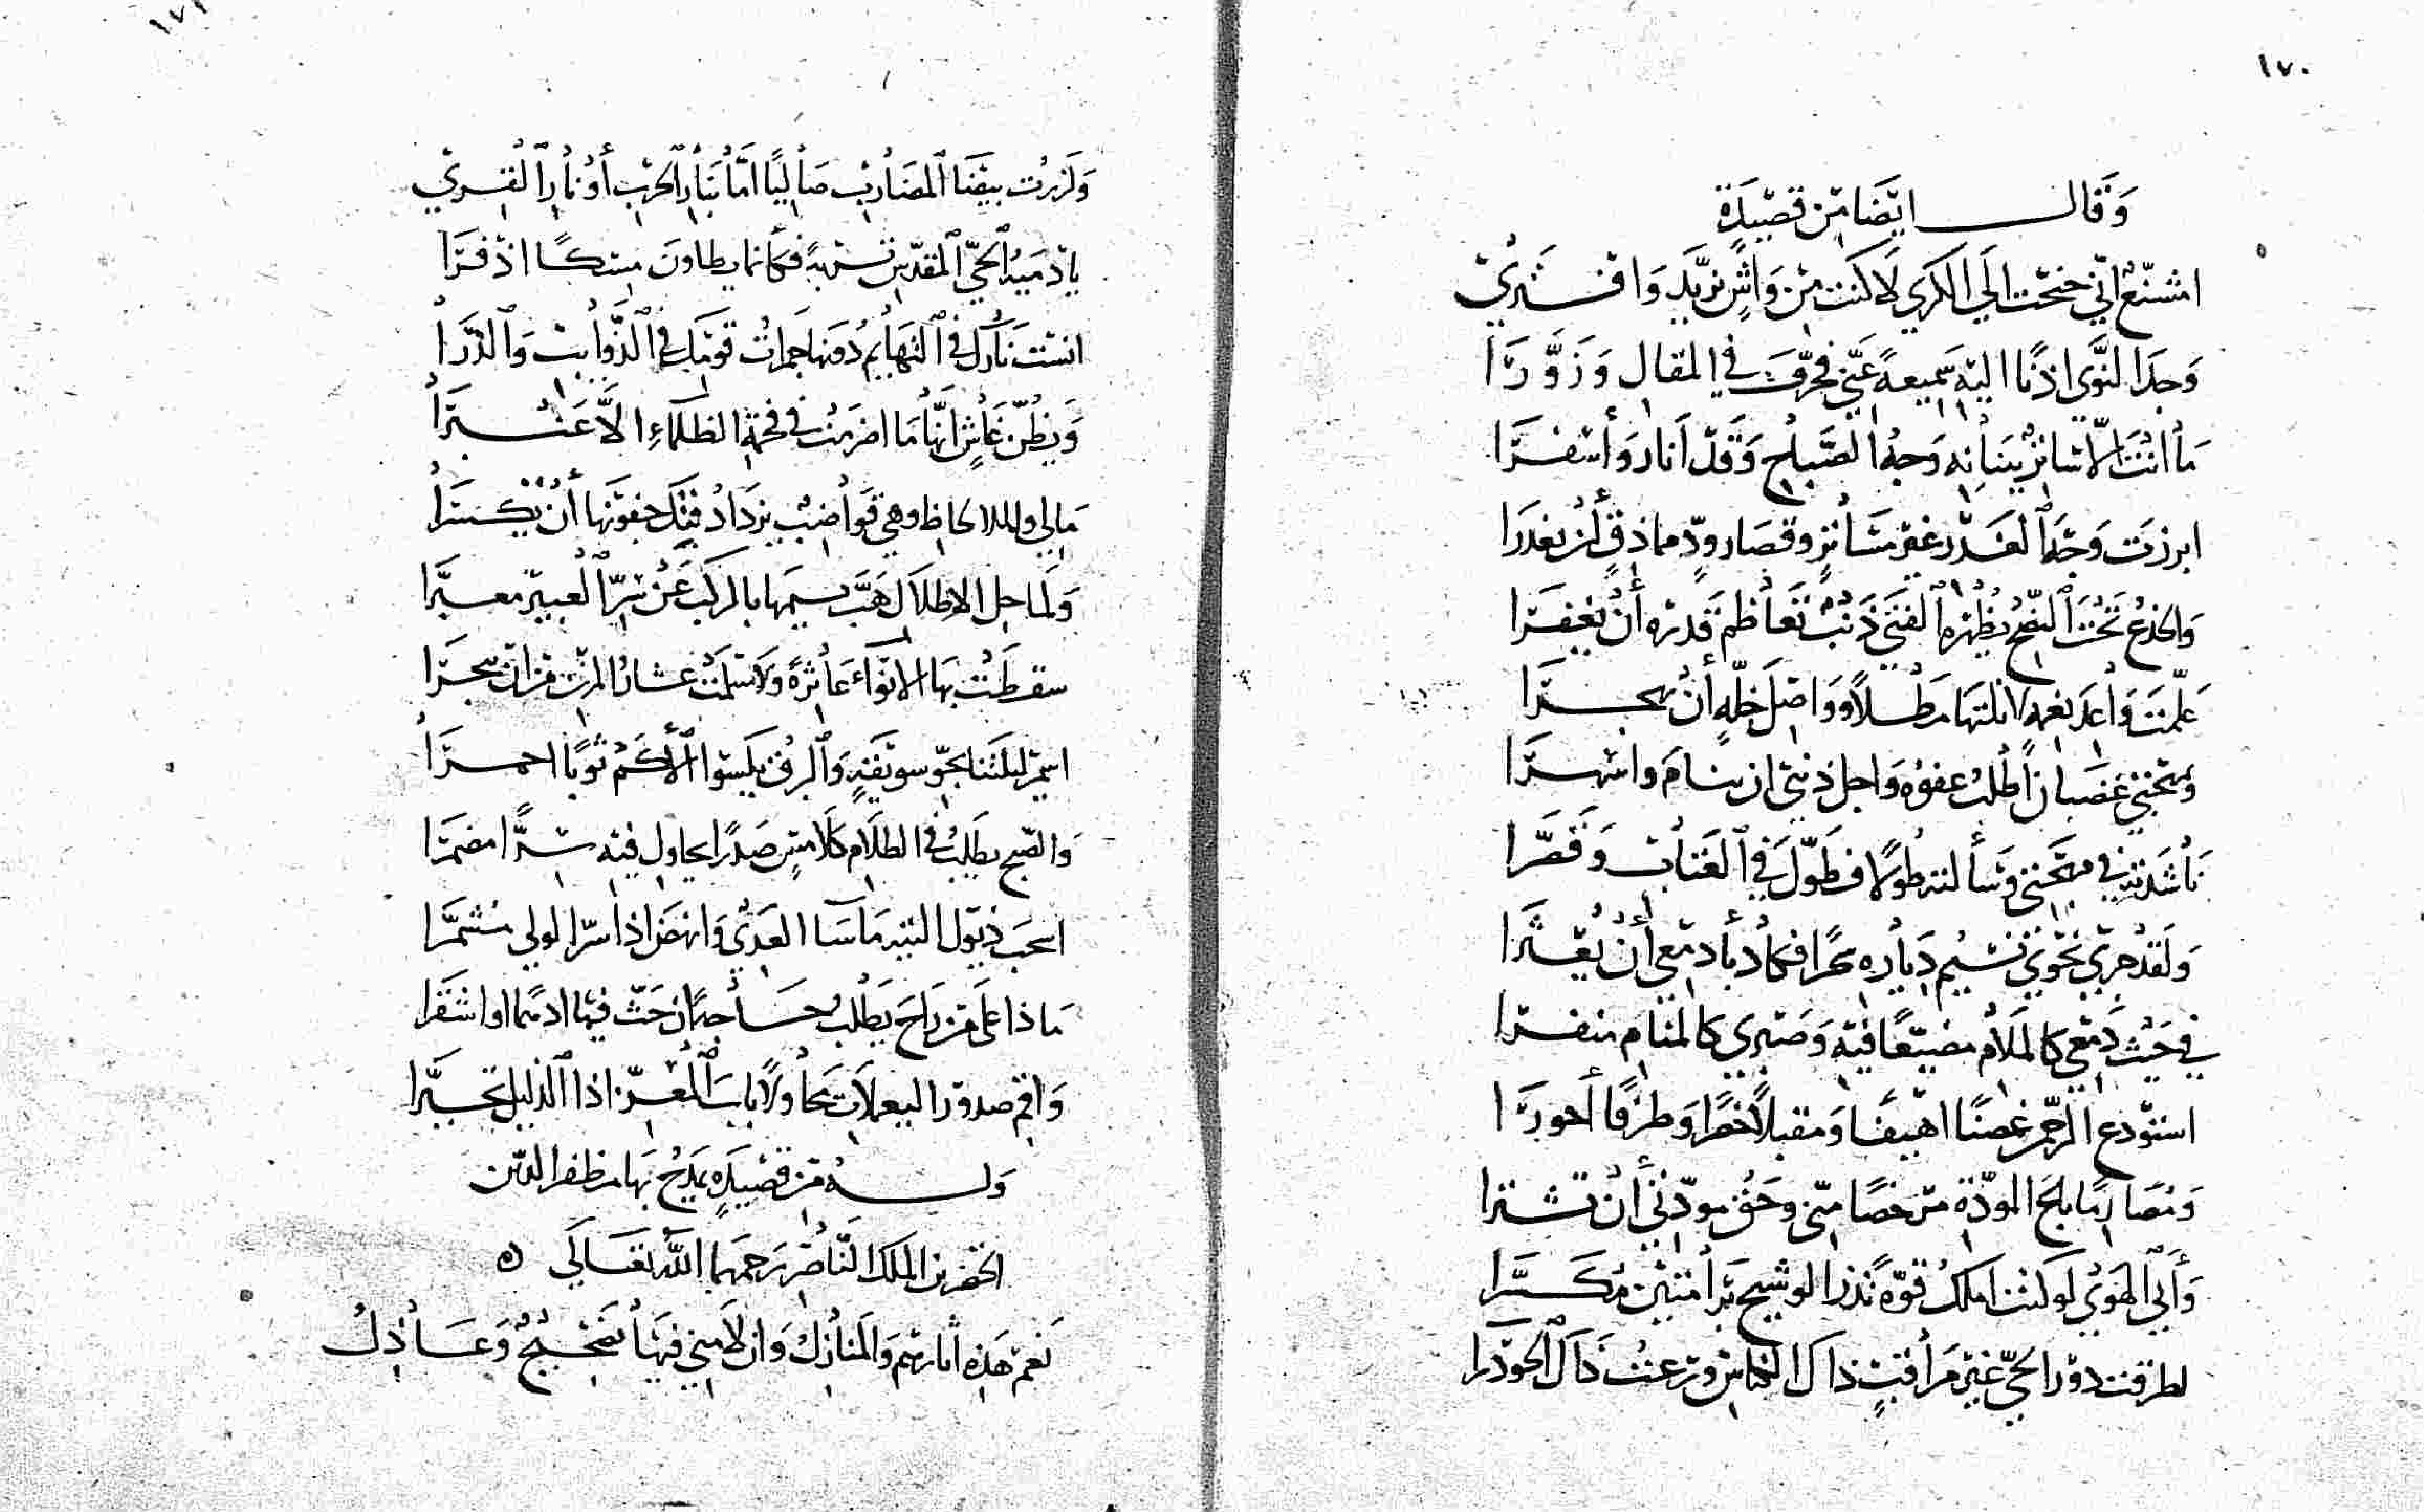 ١٧٠
وَقَالَ ايْضًا مِن قَصِيْدَةٍ
امشنّع انّي جنحْت الَى الكَرَي لَا كنت مِنْ وَاشٍ تزيَّد وَافْتَرَيْ
وَجَدَ النَّوَى اذنًا اليْه سَمِيعةً عنّي فحرَّفَ في المقال وَزَوَّرَا
مَا انْتَ الّا سَاترٌ بِبَنانِه وَجْهَ الصَّباحِ وَقَدْ اَنَارَ وَأَسْفَرَا
ابرزتَ وَجْهَ الغَدْرِ غيْر مسَاترٍ وقصَار ودّ مماذقٍ أَنْ يغدرَا
وَالخدْعُ تَحْتَ النُّصْحِ يُظْهِرُهُ الفَتَى ذَنْبٌ تَعَاظم قَدرُه أَنْ يُغْفَرَا
علّمتَ وَاعدَ نغمةٍ لا نلتَهَا مَطْلًا وَوَاصِلَ خلّةٍ أَنْ يهجرَا
وَبمُهجتي غضبان أَطْلبُ عفوَه وَاجل ذنبي ان ينَام واسْهرَا
نَاشَدته في مهجتي وَسَألته طولًا فطَوَّلَ فِي العتَاب وَقَصَّرَا
وَلَقد جري نحْوي نسْيم ديَاره سَحرًا فكادَ بأدمعي أَنْ يعْثَرَا
في حَيْثُ دَمْعي كالمَلَام مضيّعًا فيْه وَصَبْرِي كالمنَام منفرَا
استوْدعِ الرّحمن غصنًا اهْيفًا وَمقبلًا خصرًا وَطرْفًا أحورَا
وَمُصَارمًا بَاعَ المودّة مرْخصًا منّي وحَقُّ مودّتي أَنْ تُشْترَا
وَأَبي الهَوَى لَو كنت املكُ قوّةً تذر الوشيح بَدَا مَتين مُكسّرَا
لطرقت دوْر الحَيّ غيْر مُرَاقبٍ ذاكَ الكناسَ ورعْتُ ذَاكَ الجؤذرا
وَلَزرْت بيْضَا المضَارب صَاليًا امَّا بنَار الحَرْبِ أَوْ نَارِ القِرَيْ
يا دُمْيَة الحَيِّ المقدّس تربَةً فكأنما يطاونَ مسْكًا اذْفرَا
انسْت نَارك في التهَايم دُونها جَمراتُ قَوْمَك في الذّوَايب وَالذُّرَا
وَيظُنّ غَاشٍ انّهَا مَا اضرمَتْ في فحمَة الظلمَاءِ الَّا عَنْبَرَا
مَالي وللالحاظ وهي قوَاضبٌ يزدَادُ فتك جفونهَا أَنْ تُكْسَرَا
وَلمَاحل الاطلَال هَبَّ نسيمهَا بالركب عَنْ نشر العبيْر معبّرَا
سقطَتْ بهَا الانوَاء عَاثرةً وَلَا سَلمَتْ عشَارُ المزنِ مِنْ ان تنحرَا
اسمير ليلتنا بجوّ سويقةٍ وَالبرق يكسوا الأكمْ ثوبًا احمرَا
وَالصّبح يطلبُ في الظلَام كلَامسٍ صَدرًا يحاول فيْه سرًّا مضمرَا
اسحب ذيول التيه مَا سَاء العدَى وَانهض اذا سرّ الولي مشمّرَا
مَا ذا عَلى مَنْ رَاحَ يطلب حَاجةً ان حَثّ فيهَا ادهمًا او اشقرَا
وَاقم صدوْر اليعملات محَاولًا بابَ المعزّ اذا الذليل تحيّرَا
وَلـه مِن قصيْدَةٍ يَمدَحُ بهَا مظفر الديْن
الخضر بن الملك النّاصر رحمَهما اللّه تعَالَى
نعَم هَذِه اثارهُم وَالمَنَازلُ وَان لَامني فيْهَا ضَجيْجٌ وَعَاذِلُ